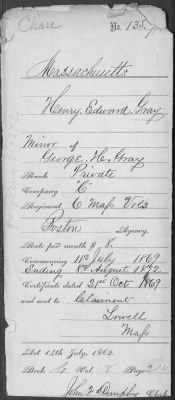 Chase
No. 135.
Massachusetts
Henry Edward Gray
Minor of
George H. Gray
Rank Private
Company "C"
Regiment 6 Mass Vols
Boston Agency.
Rate per month $ 8.
Commencing 18th July 1869
Ending 8th August 1872
Certificate dated 21st Oct 1869
and sent to Claimant
Lowell
Mass
Act 14th July, 1862.
Book Vol. 8 Page
John F Clerk